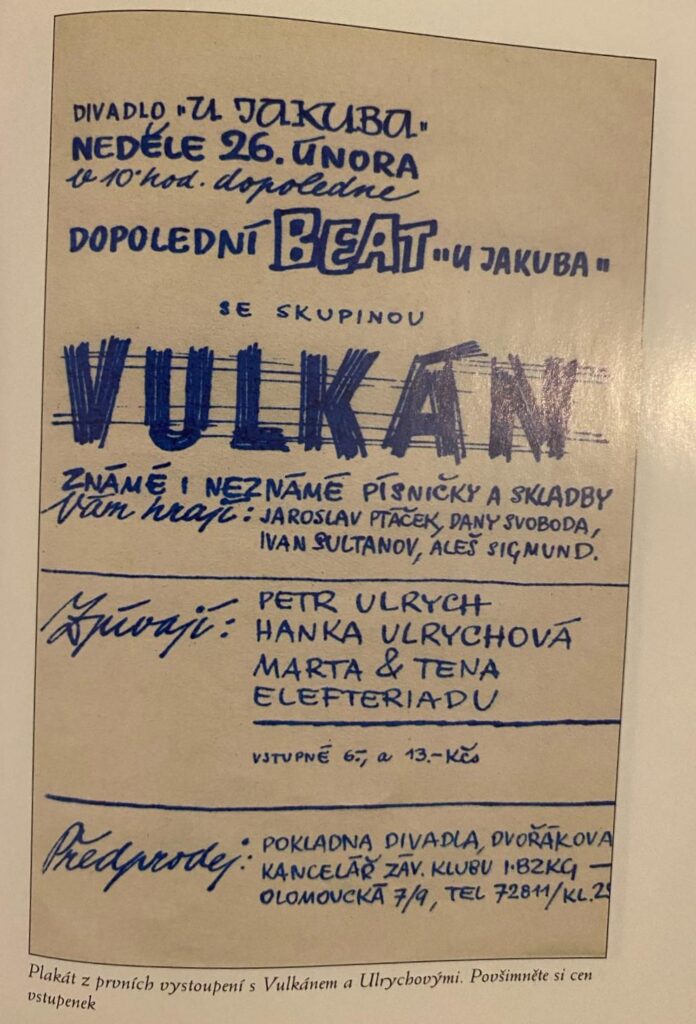 DIVADLO "U JAKUBA"
NEDĚLE 26. ÚNORA
v 10 hod. dopoledne
DOPOLEDNÍ BEAT "U JAKUBA"
SE SKUPINOU
VULKÁN
ZNÁMÉ I NEZNÁMÉ PÍSNIČKY A SKLADBY
Vám hrají: JAROSLAV PTÁČEK, DANY SVOBODA,
IVAN SULTANOV, ALEŠ SIGMUND.
Zpívají: PETR ULRYCH
HANKA ULRYCHOVÁ
MARTA & TENA
ELEFTERIADU
VSTUPNÉ 6.-, a 13.- Kčs
Předprodej: POKLADNA DIVADLA, DVOŘÁKOVA
KANCELÁŘ ZÁV. KLUBU I.BZKG —
OLOMOUCKÁ 7/9, TEL 72811/KL.
Plakát z prvních vystoupení s Vulkánem a Ulrychovými. Povšimněte si cen
vstupenek